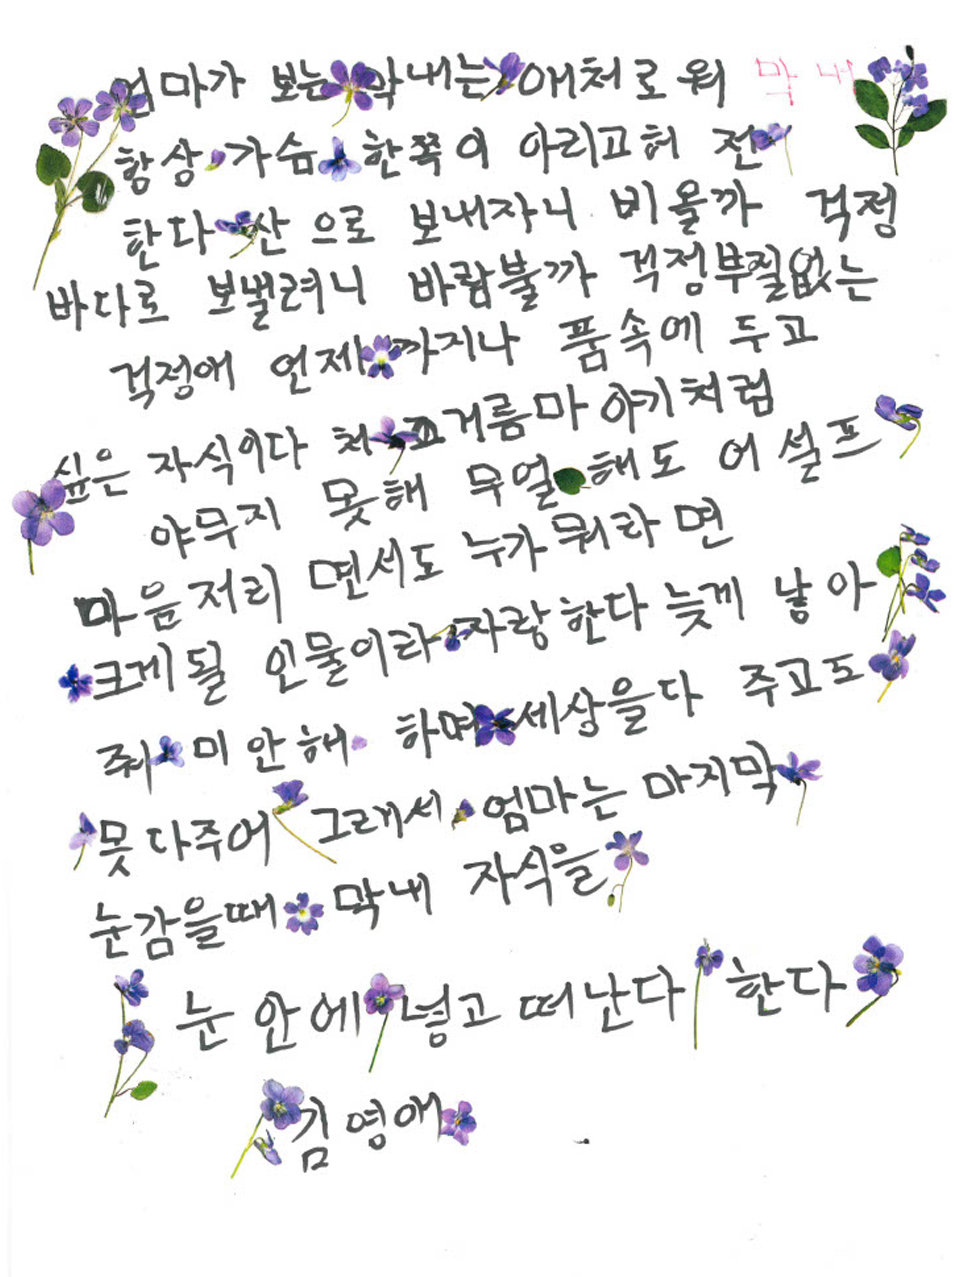 엄마가 보는 막내는 애처로워 막내
항상 가슴 한쪽이 아리고허 전
한다 산으로 보내자니 비올까 걱정
바다로 보낼려니 바람불까 걱정부질없는
걱정애 언제까지나 품속에 두고
싶은 자식이다 처 고거름마 아기처럼
야무지 못해 무얼 해도 어설프
마음저리 면서도 누가 뭐라 면
크게될 인물이라 자랑한다 늦게 낳아
줘 미안해 하며 세상을다 주고도
못다주어 그래서 엄마는 마지막
눈감을때 막내 자식을
눈 안에 넣고 떠난다 한다
김영애